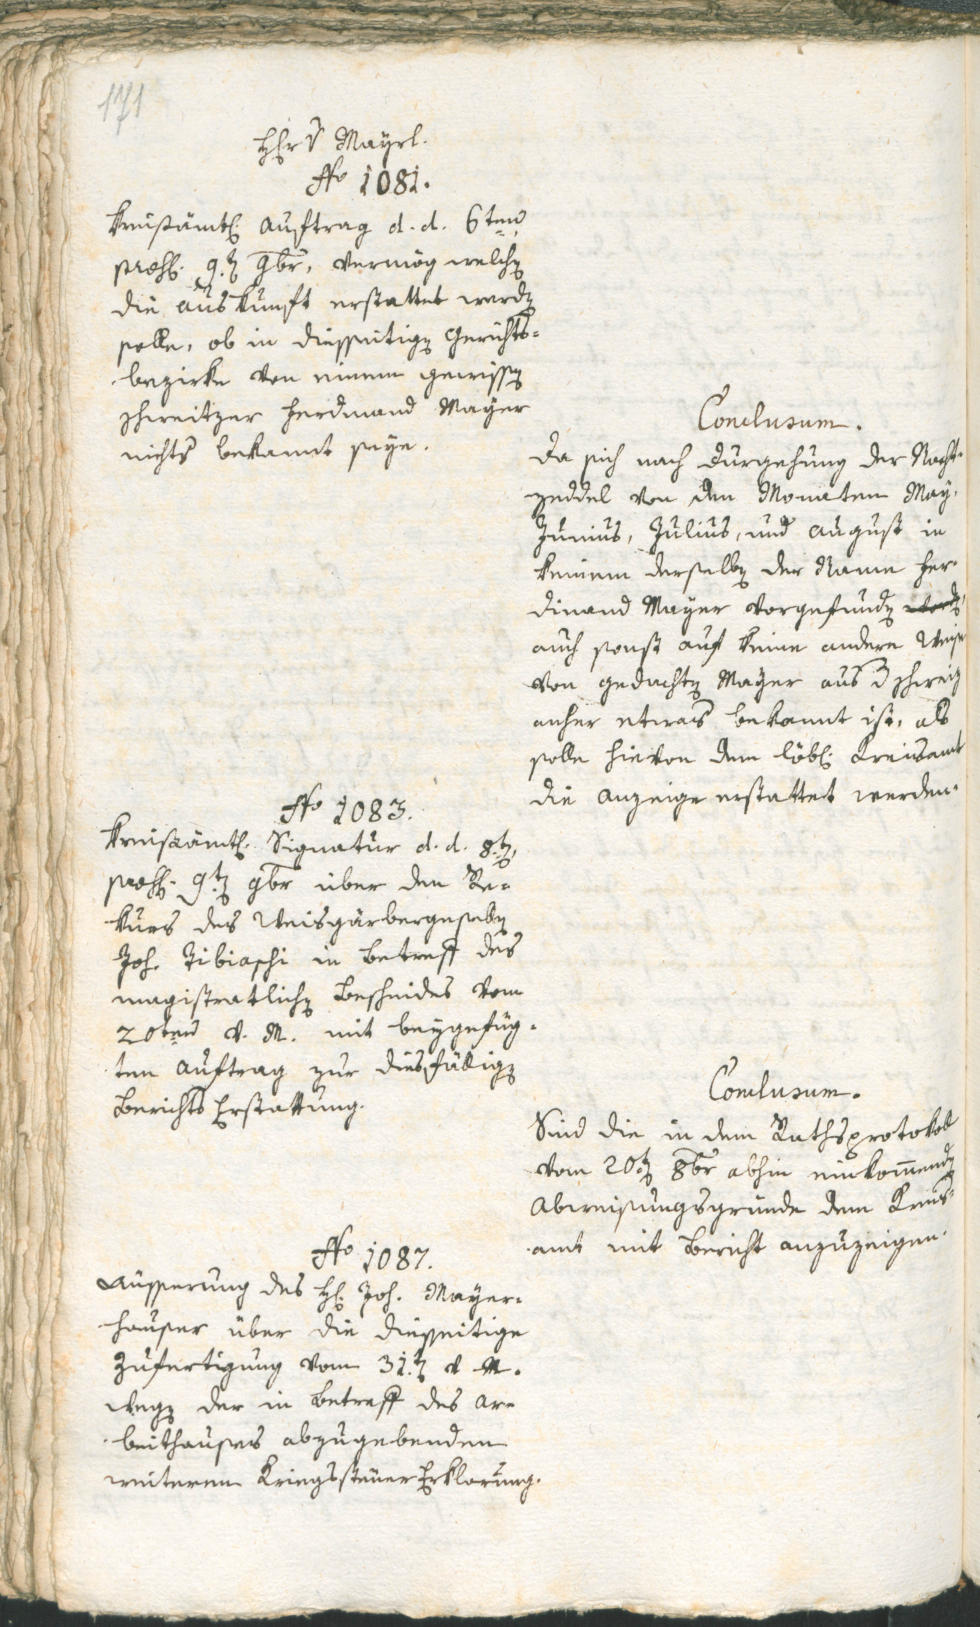 171
Herr v Mayrl.
No 1081.
Kreisämtl. Auftrag d. d. 6ten
praes. 9.t 9br, vermög welch
die Auskunft erstattet werd
solle, ob in diesseitig Gerichts-
bezirke von einem gewiss
Schweitzer Ferdinand Mayer
nichts bekannt seye.
Conclusum.
Da sich nach Durgehung der Nacht-
zeddel von den Monaten May,
Junius, Julius, und August in
keinem derselb der Name Fer-
dinand Mayer vorgefund
auch sonst auf keine andere Weise
von gedacht Mayer aus d Schweiz
anher etwas bekannt ist, als
solle hievon dem löbl. Kreisamt
die Anzeige erstattet werden.
No 1083.
Kreisämtl. Signatur d. d. 8.t,
praes. 9t 9br über den Re-
kurs des Weisgärbergesell
Joh. Tibiaschi in Betreff des
magistratlich Bescheides vom
20ten v. M. mit beygefüg-
ten Auftrag zur diesfällig
Berichts Erstattung.
Conclusum.
Sind die in dem Rathsprotokoll
vom 20t 8br abhin einkom̅end
Abweisungsgründe dem Kreis-
amt mit Bericht anzuzeigen.
No 1087.
Äusserung des H. Joh. Mayer-
hauser über die diesseitige
Zufertigung vom 31.t v M.
weg der in Betreff des Ar-
beithauses abzugebenden
weiteren Kriegssteuer Erklarung.